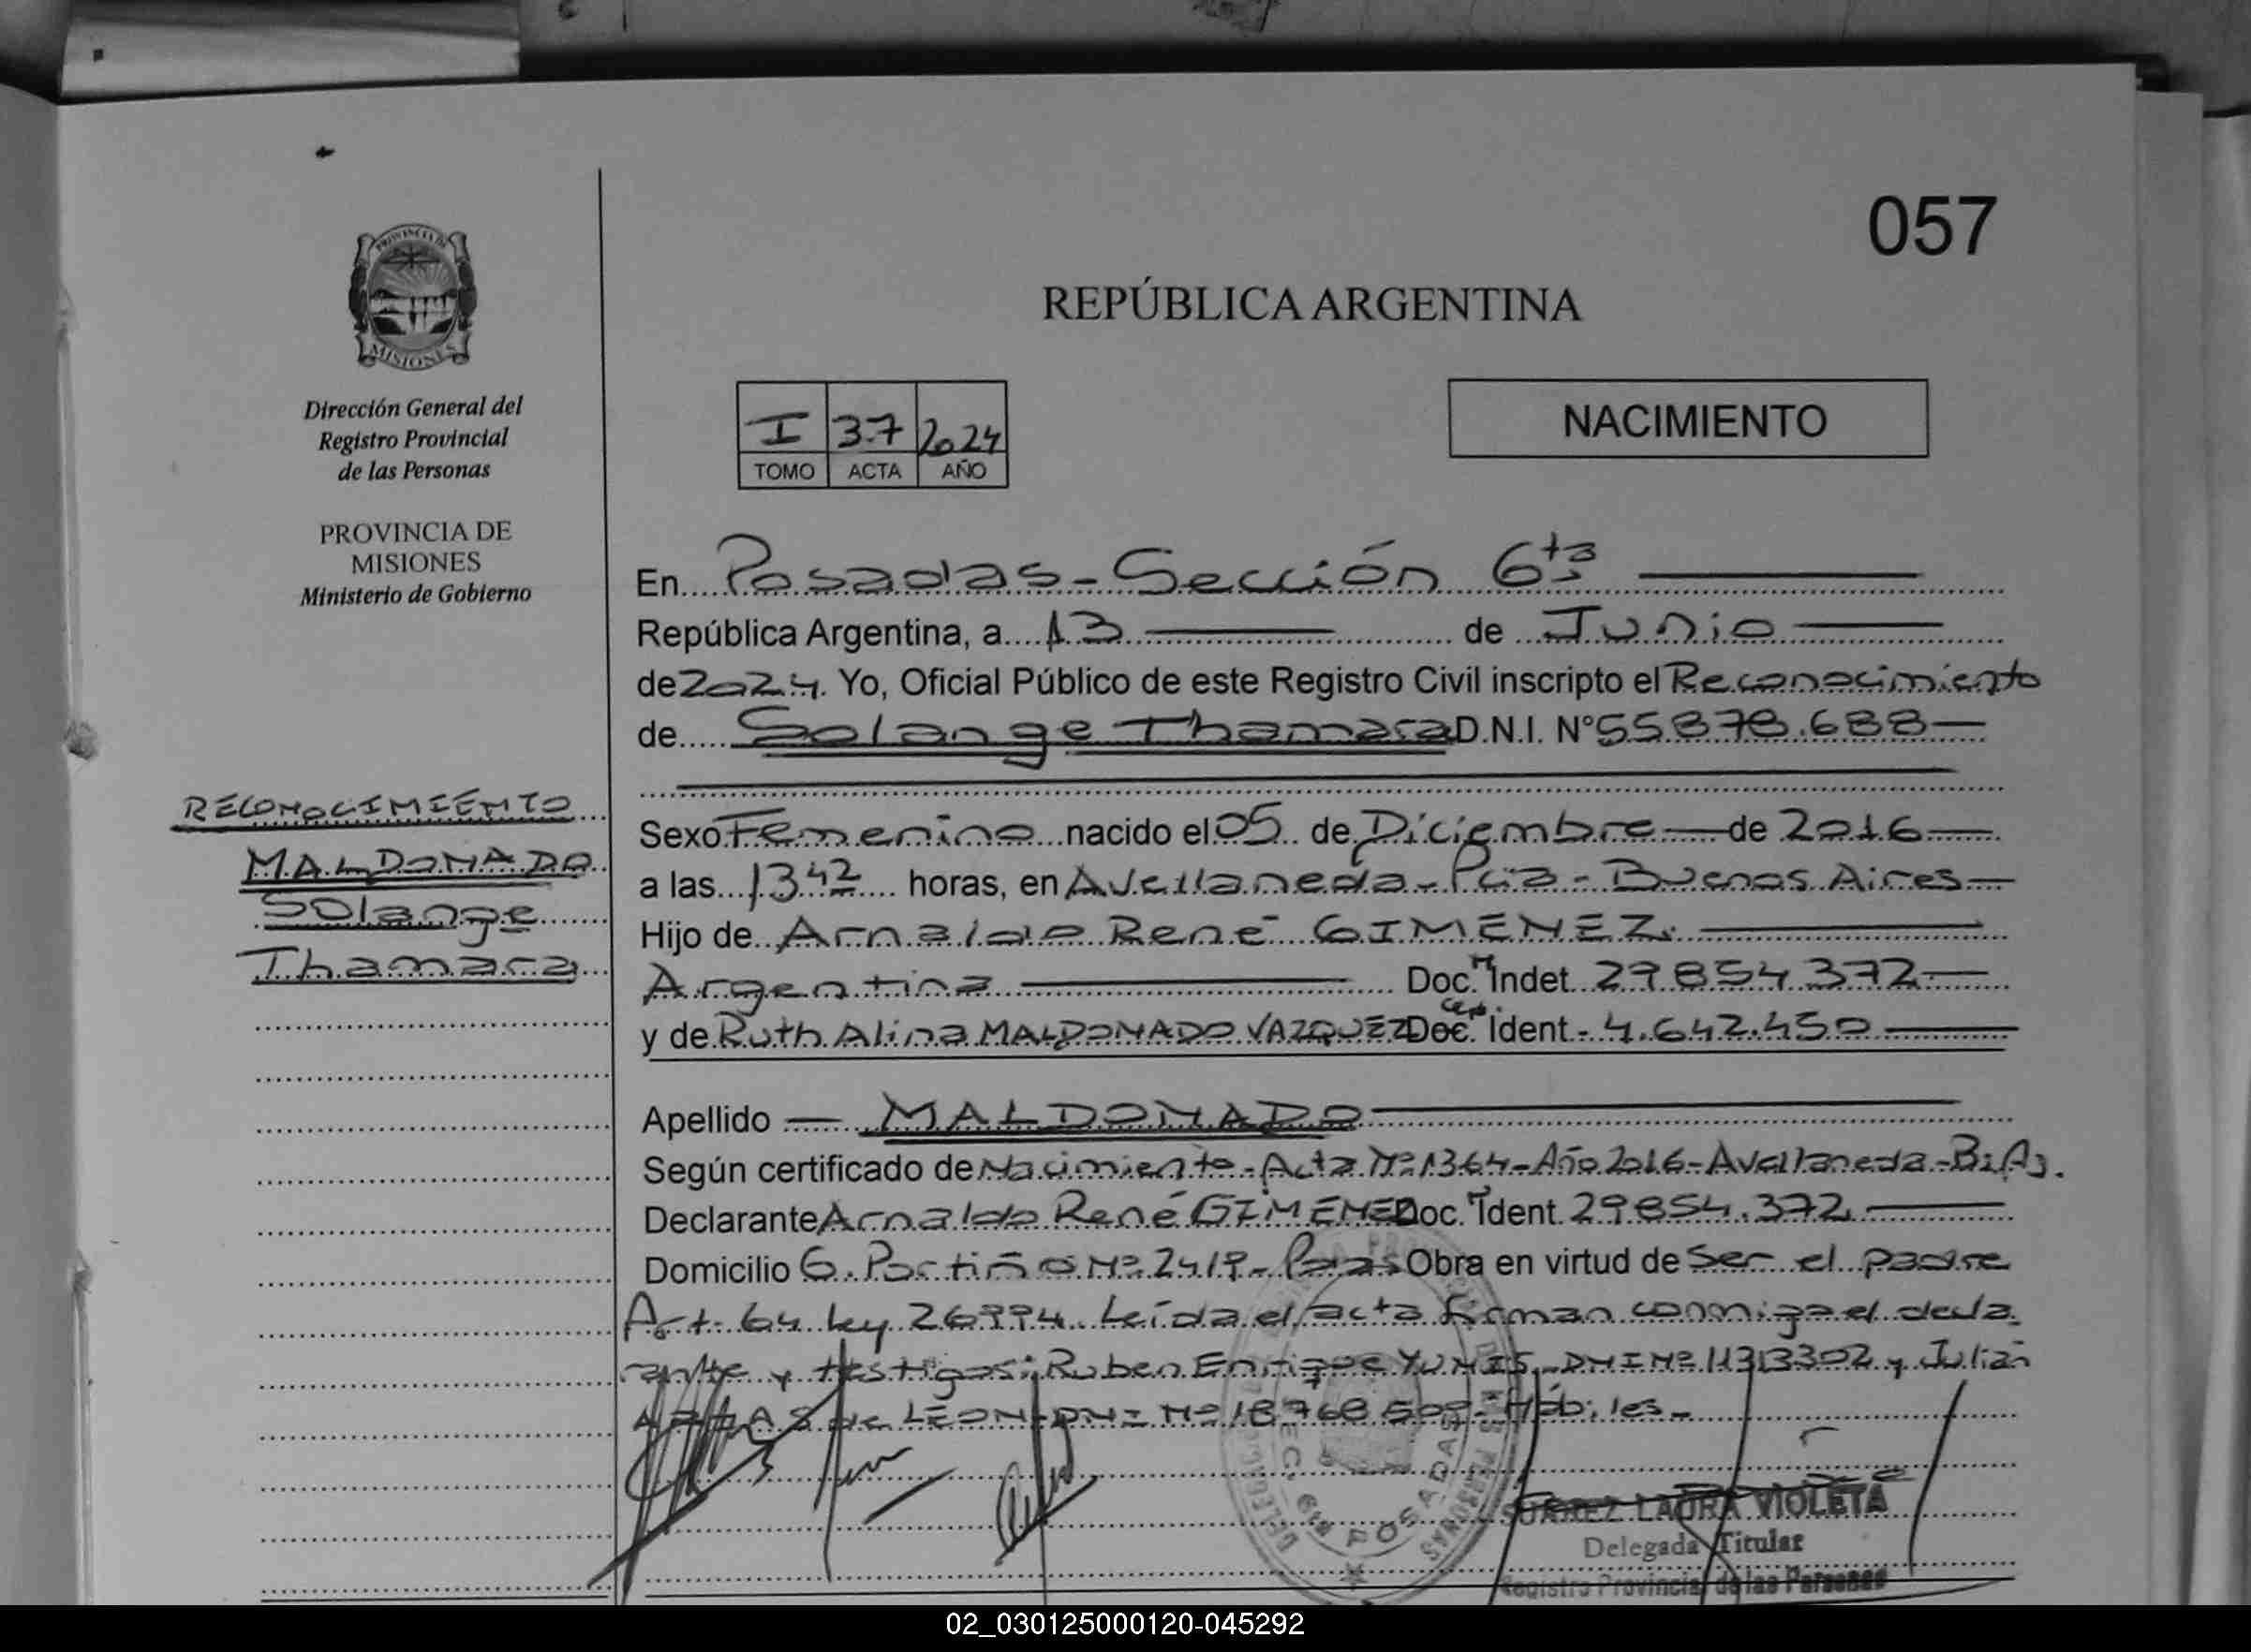 057
PROVINCIA DE
MISIONES
Dirección General del
Registro Provincial
de las Personas
PROVINCIA DE
MISIONES
Ministerio de Gobierno
REPÚBLICA ARGENTINA
I 37 2024
TOMO ACTA AÑO
NACIMIENTO
En Posadas-Sección 6ta
República Argentina, a 13 de Junio
de 2024. Yo, Oficial Público de este Registro Civil inscripto el Reconocimiento
de Solange Thamara D.N.I. N° 55878.688
Sexo Femenino nacido el 05 de Diciembre de 2016
a las 13 42 horas, en Avellaneda-Pcia-Buenos Aires
Hijo de Arnaldo René GIMENEZ.
Argentina Doc. M Indet. 29854.372
y de Ruth Alina MALDONADO VAZQUEZ Doc. Ident. 4.642.450
Apellido MALDONADO
Según certificado de Nacimiento-Acta N° 1364-Año 2016-Avellaneda-Bs As.
Declarante Arnaldo René GIMENEZ Doc. Ident. 29854.372
Domicilio G. Portiño N° 2419- Obra en virtud de Ser el padre
Art. 64 Ley 26994. Leída el acta firman conmigo el decla
rante y testigos: Ruben Enrique YUNIS-DNI N° 11313302 y Julian
de LEON-DNI N° 18768509-Hábiles-
RECONOCIMIENTO
MALDONADO
Solange
Thamara
SEC. 6ta POSADAS
SUAREZ LAURA VIOLETA
Delegada Titular
Registro Provincial de las Personas
02_030125000120-045292